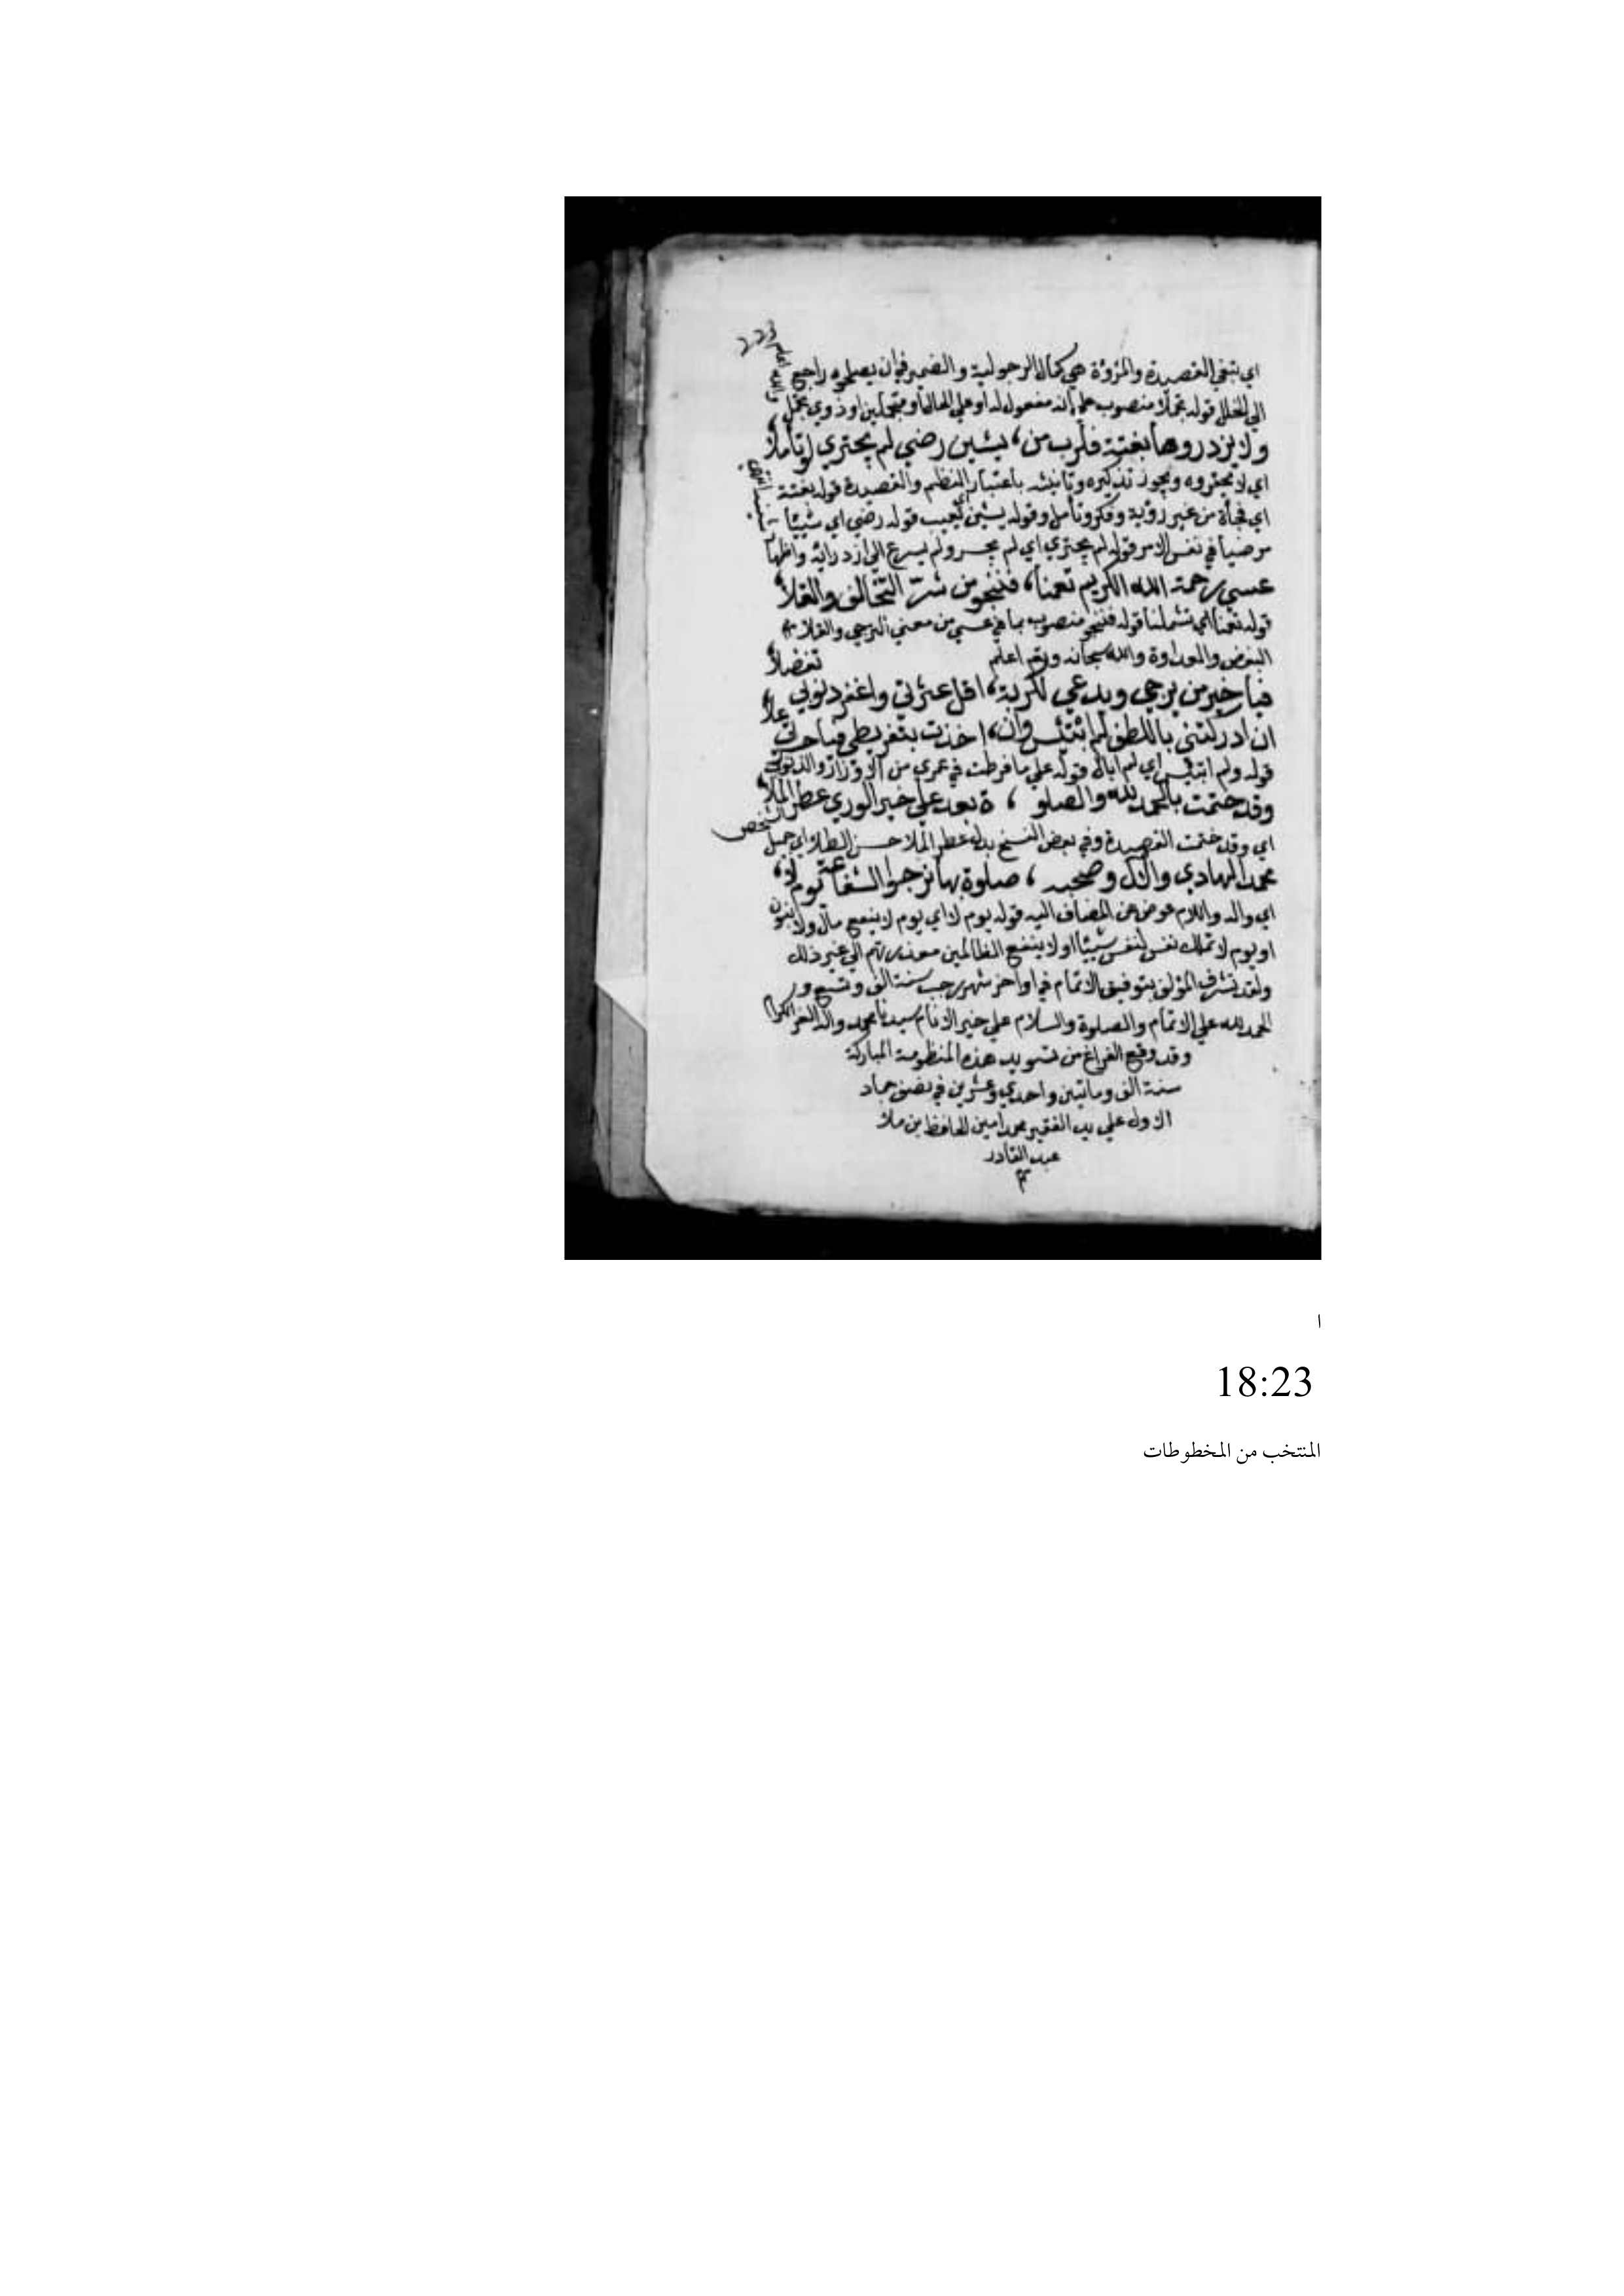 اي تبغي القصيدة والمروؤة هي كمال الرجولية والضمير في ان يصلحوه راجع
الي الخلل قوله تجملا منصوب علي انه مفعول له او علي الحال او متجملين او ذوي تجمل
ولا يزدروها بغتة فلرب من، يشين رضي لم يجتري لو تأملا
اي لا يحتقروه ويجوز تذكيره وتانيثه باعتبار النظم والقصيدة قوله بغتة
اي فجأة من غير رؤية وفكر وتأمل وقوله يشين اي يعيب قوله رضي اي شيئا
مرضيا في نفس الامر قوله لم يجتري اي لم يجسر ولم يسرع الي ازدرائه
عسي رحمة الله الكريم تعمنا، فننجو من شر التخالف والقلا
قوله تعمنا اي تشملنا قوله فننجو منصوب بما في عسي من معني الترجي والقلا
البغض والعداوة والله سبحانه وتع اعلم
تفضلا
فيا خير من يرجي ويدعي لكربة، اقل عثرتي واغفر ذنوبي
ان ادركتني باللطف لم ابتئس وان، اخذت بتفريطي فيا حسرتي علا
قوله ولم ابتئس اي لم ابال قوله علي ما فرطت في عمري من الاوزار والذنوب
وقد ختمت بالحمد لله والصلو، ة بعد علي خير الوري عطر الملا
اي وقد ختمت القصيدة وفي بعض النسخ بدل عطر الملا حسن الطلا اي جميل الشخص
محمد الهادي والال وصحبه، صلوة بها نرجوا الشفاعة يوم لا،
اي واله واللام عوض عن المضاف اليه قوله يوم لا اي يوم لا ينفع مال ولا بنون
او يوم لا تملك نفس لنفس شيئا او لا ينفع الظالمين معذرتهم الي غير ذلك
ولقد تشرف المؤلف بتوفيق الاتمام في اواخر شهر رجب سنة الف وتسع
الحمد لله علي الاتمام والصلوة والسلام علي خير الانام سيدنا محمد واله الغر الكرام
وقد وقع الفراغ من تسويد هذه المنظومة المباركة
سنة الف وماتين واحدي وعشرين في نصف جماد
الاول علي يد الفقير محمد امين الحافظ بن ملا
عبد القادر
تم
ا
18:23
المنتخب من المخطوطات